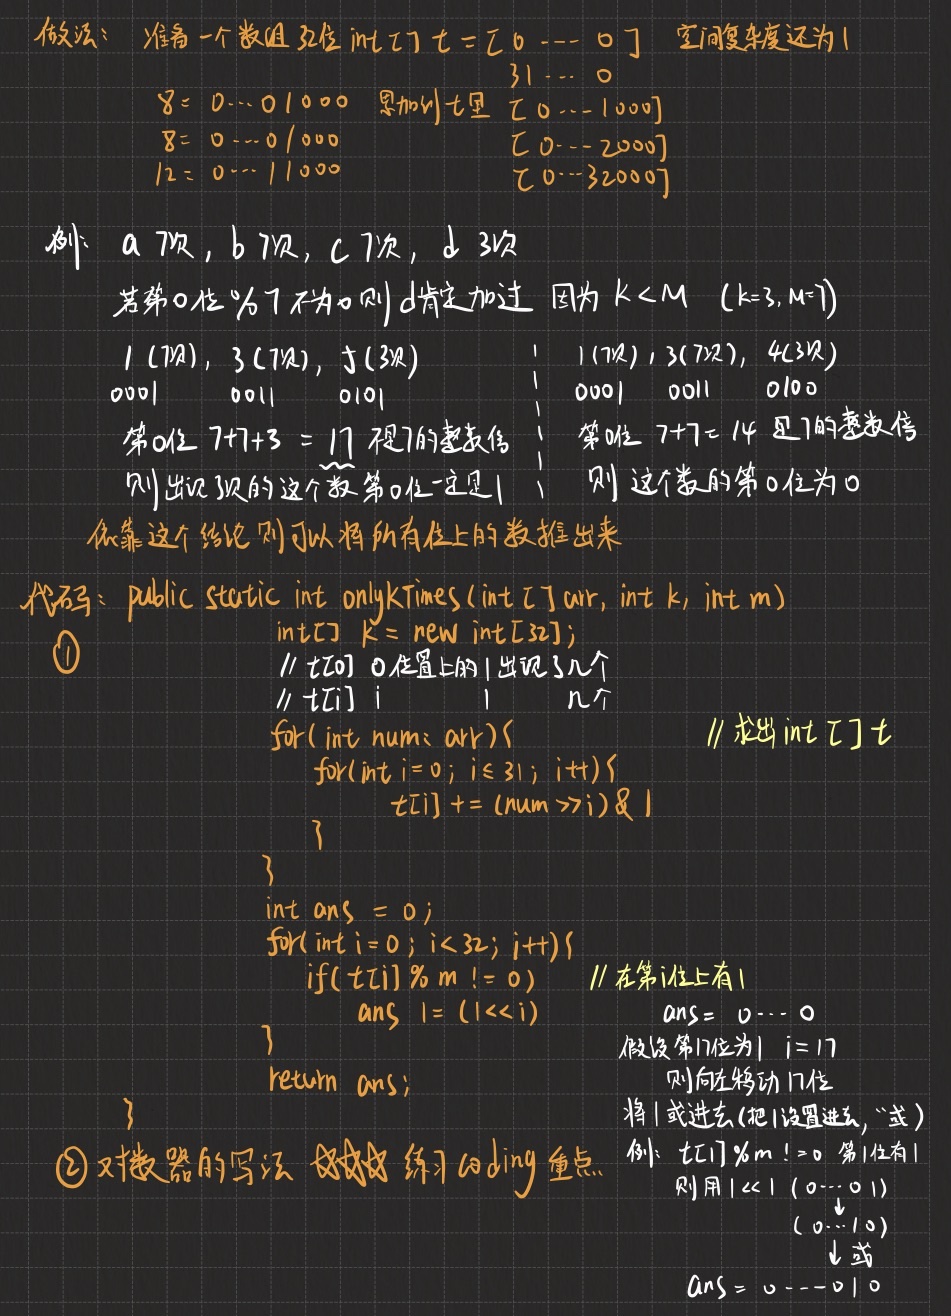 做法: 准备一个数组 32位 int [] t = [ 0 --- 0 ] 空间复杂度还为1
31 ··· 0
8 = 0···01000 累加到t里 [ 0 --- 1000]
8 = 0---01000 [ 0--- 2000]
12 = 0---11000 [ 0---32000]
例: a 7次, b 7次, c 7次, d 3次
若第0位 % 7 不为0 则 d肯定加过 因为 K < M (k=3, M=7)
1 (7次), 3 (7次), 5 (3次)
0001 0011 0101
第0位 7+7+3 = 17 不是7的整数倍
则出现3次的这个数第0位一定是1
1 (7次), 3(7次), 4(3次)
0001 0011 0100
第0位 7+7= 14 是7的整数倍
则 这个数的第0位为0
依靠这个结论则可以将所有位上的数推出来
代码: public static int onlyKTimes (int [] arr, int k, int m)
① int[] k = new int[32];
// t[0] 0位置上的1出现了几个
// t[i] i 1 几个
for( int num: arr){ // 求出 int [] t
for(int i=0; i≤31; i++){
t[i] += (num >>i) & 1
}
}
int ans = 0;
for( int i=0; i<32; i++){
if( t[i] % m != 0) // 在第i位上有1
ans |= (1<<i)
}
return ans;
}
ans = 0--- 0
假设第17位为1 i=17
则向左移动17位
将1或进去(把1设置进去, "或)
例: t[1] % m != 0 第1位有1
则用 1<<1 (0---01)
↓
(0---10)
↓ 或
ans = 0----010
② 对数器的写法 ☆☆☆ 练习coding重点.